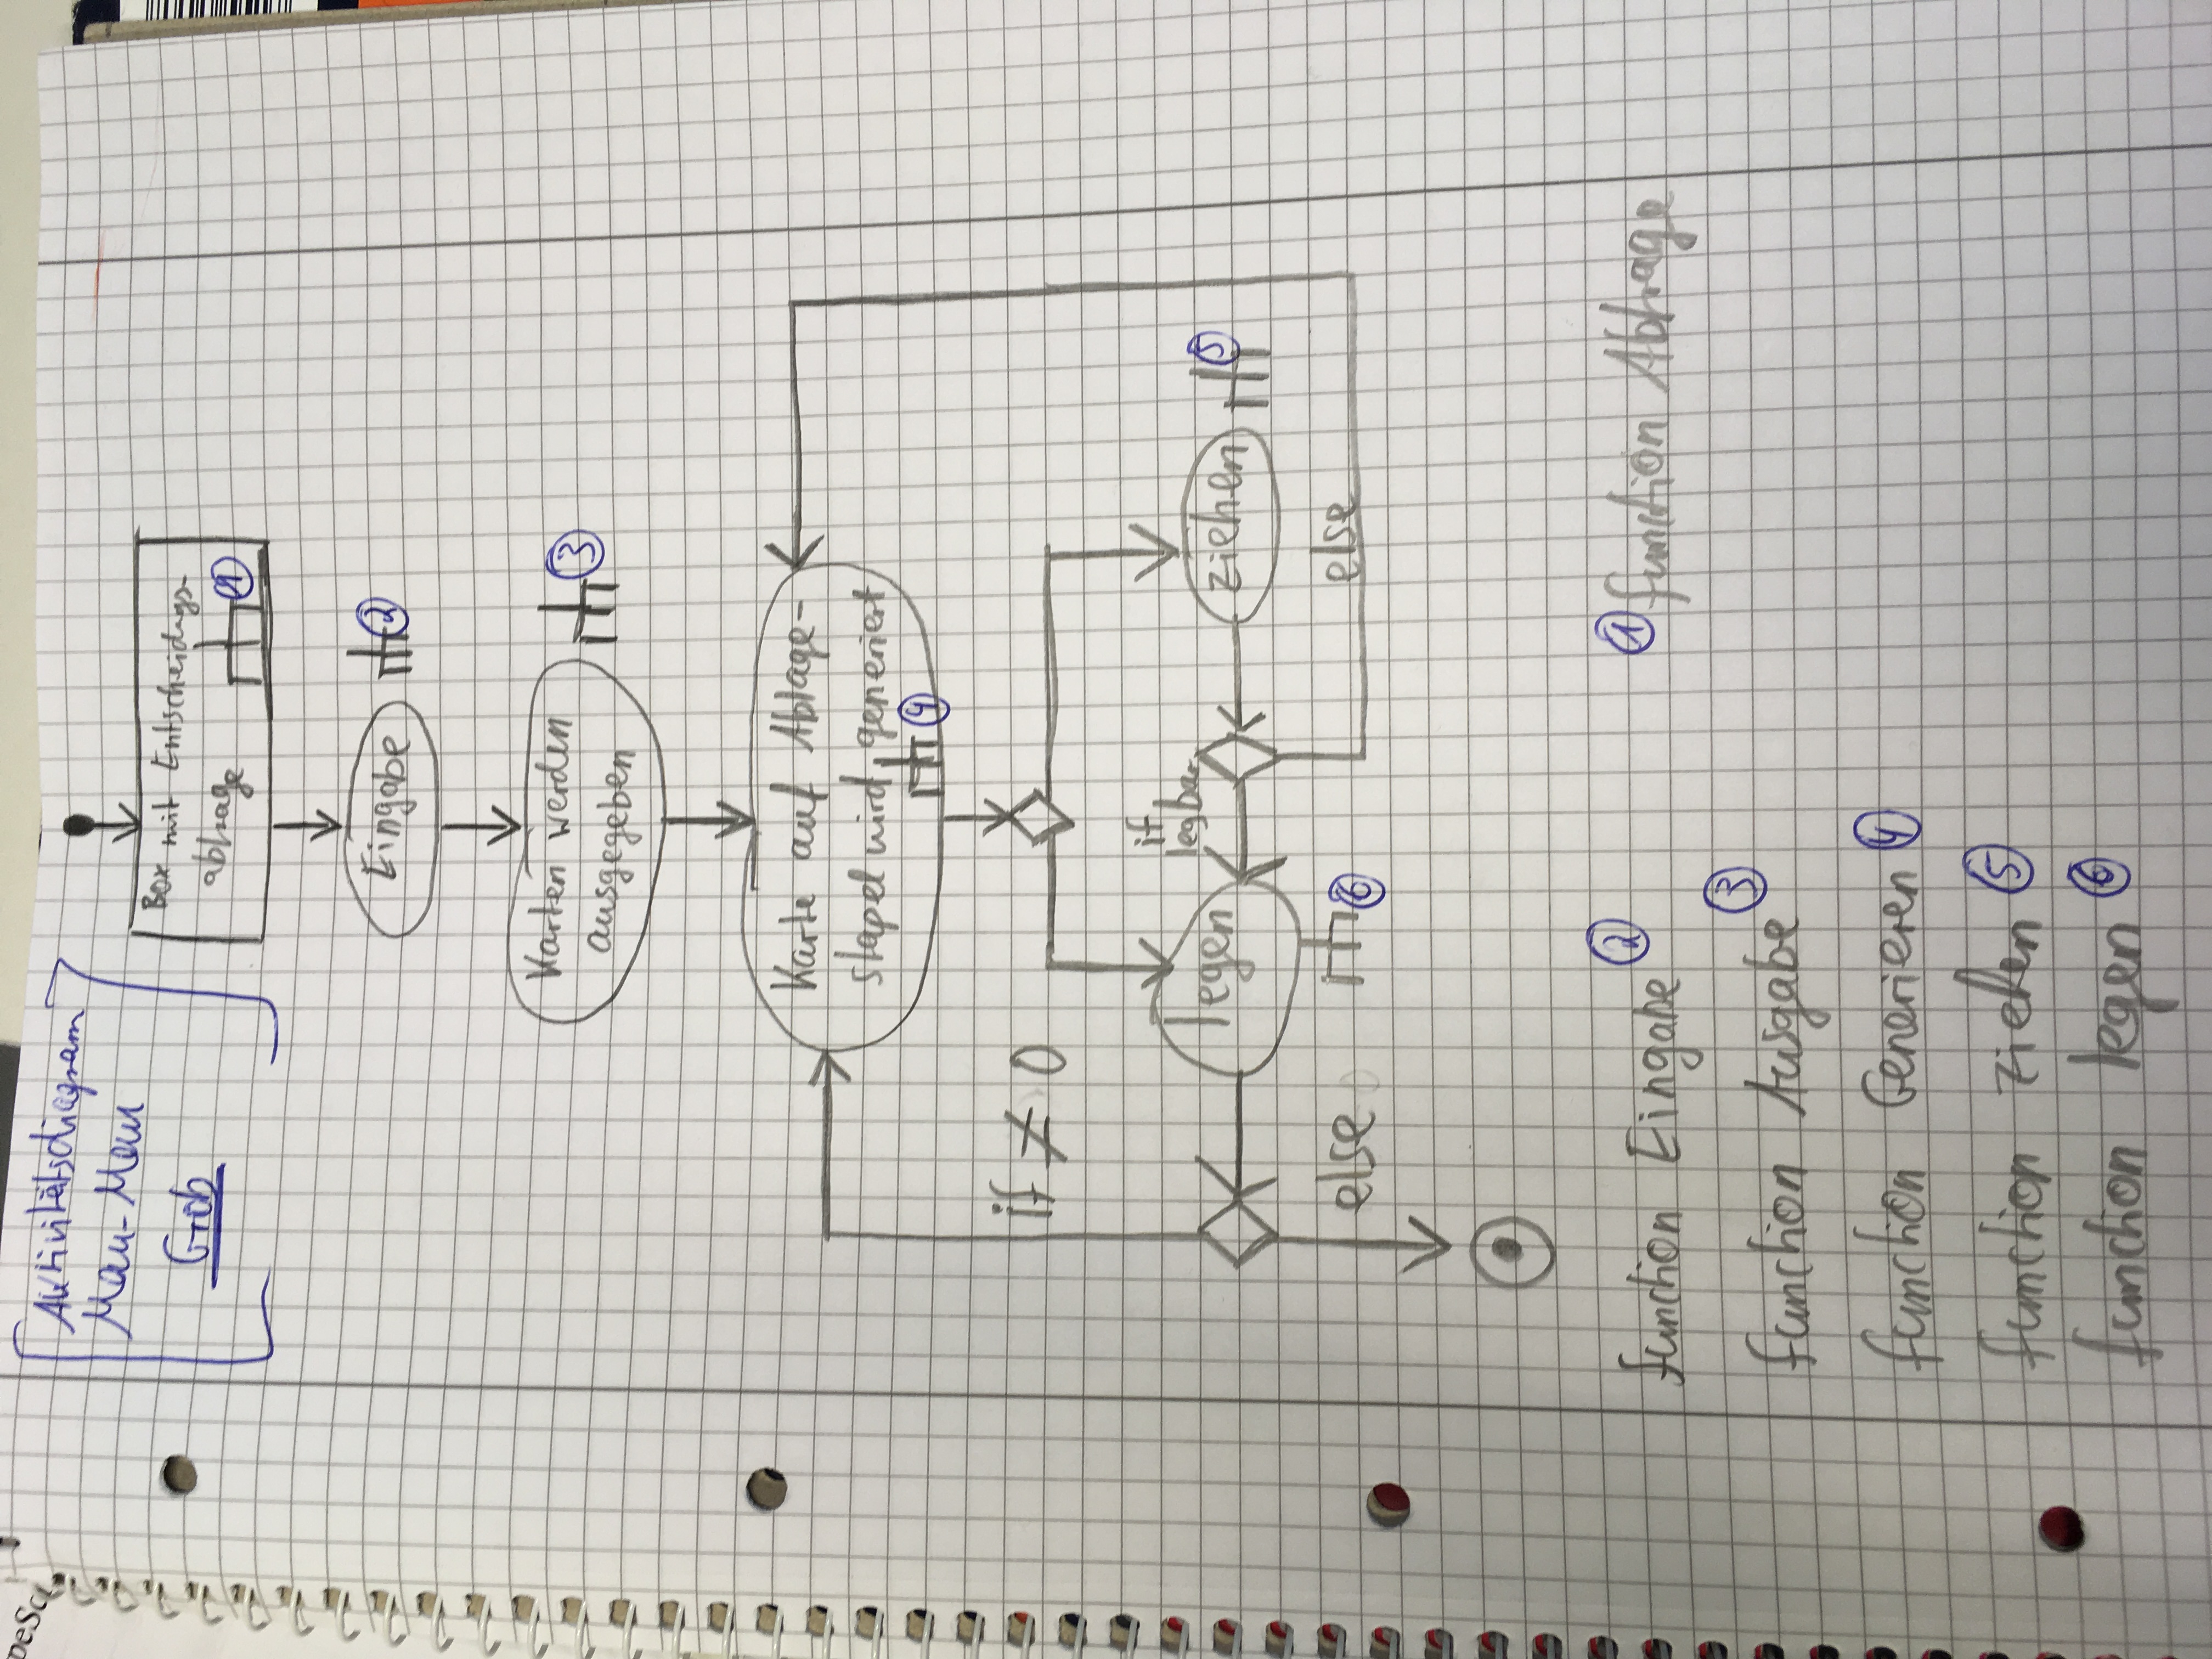 Aktivitätsdiagram
Mau-Mau
Grob
Box mit Entscheidungs-
abfrage
1
Eingabe
2
Karten werden
ausgegeben
3
Karte auf Ablage-
stapel wird generiert
4
if ≠ 0
if
legbar
legen
ziehen
5
else
6
else
function Eingabe 2
1 function Abfrage
function Ausgabe 3
function Generieren 4
function ziehen 5
function legen 6